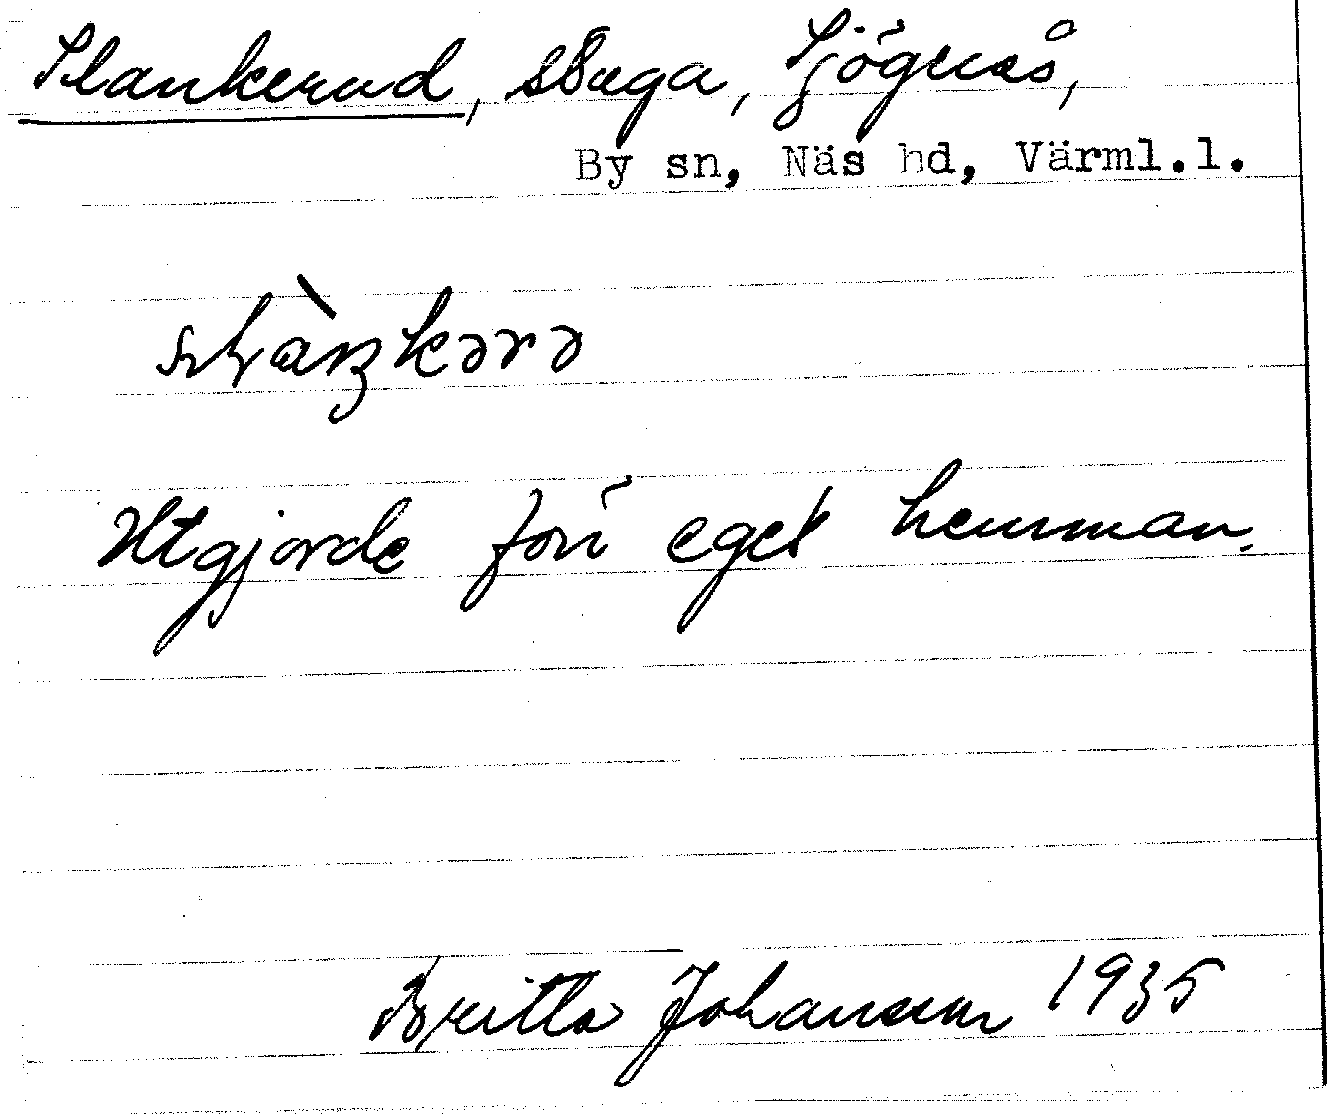 Slankerud, stuga, Sjögerås,
By sn, Näs hd, Värml.l.
Utgjorde förr eget hemman.
Britta Johansson 1935